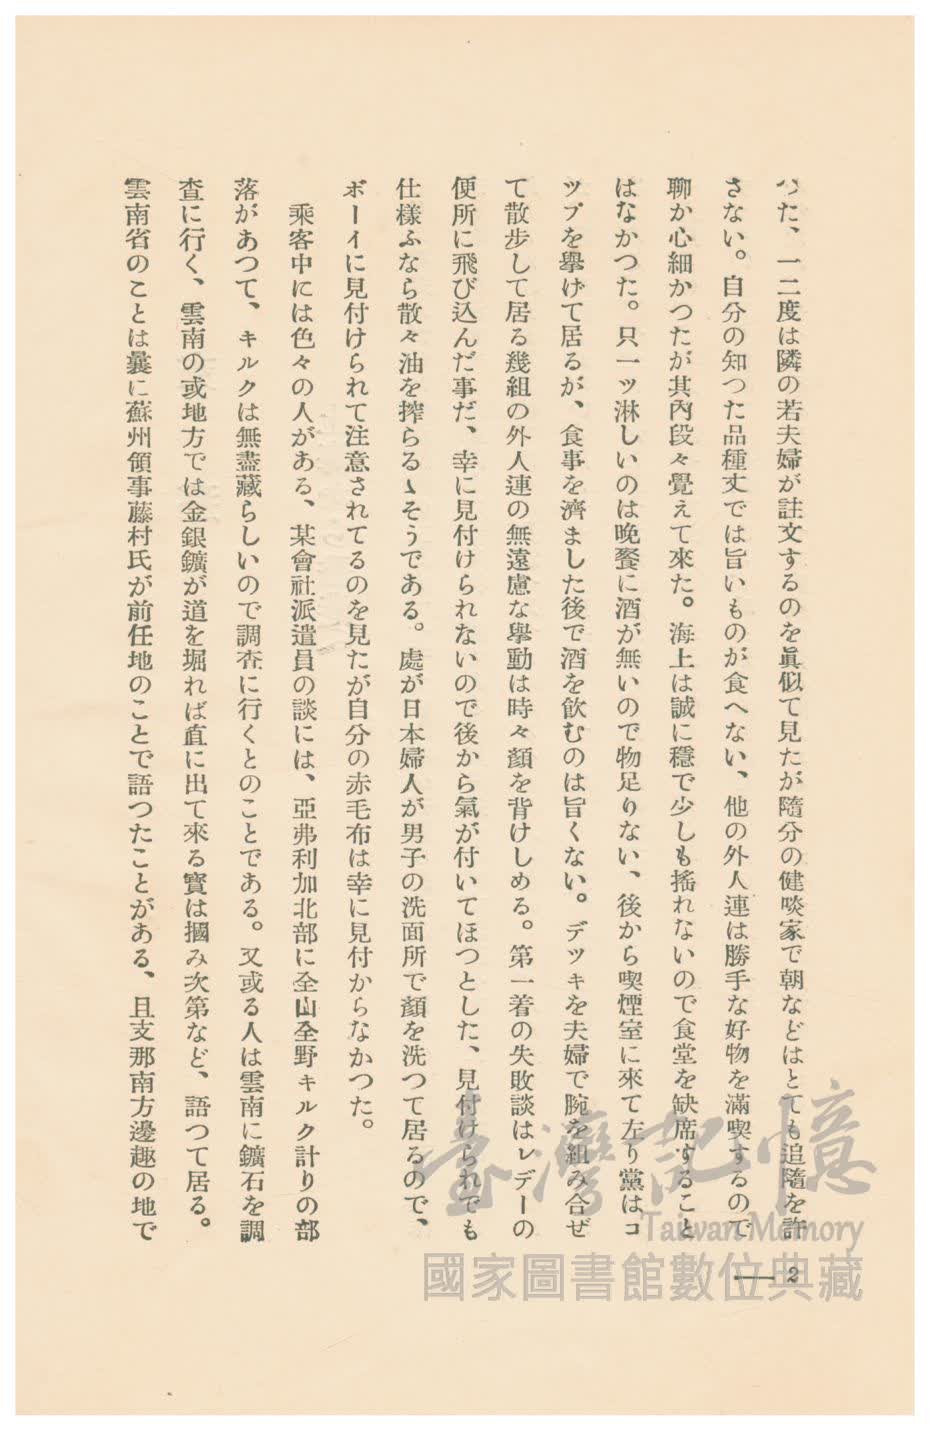 つた、一二度は隣の若夫婦が註文するのを眞似て見たが隨分の健啖家で朝などはとても追隨を許
さない。自分の知つた品種丈では旨いものが食へない、他の外人連は勝手な好物を滿喫するので
聊か心細かつたが其內段々覺えて來た。海上は誠に穩で少しも搖れないので食堂を缺席すること
はなかつた。只一ツ淋しいのは晩餐に酒が無いので物足りない、後から喫煙室に來て左り黨はコ
ツプを擧げて居るが、食事を濟ました後で酒を飮むのは旨くない。デツキを夫婦で腕を組み合ぜ
て散步して居る幾組の外人連の無遠慮な擧動は時々顏を背けしめる。第一着の失敗談はレデーの
便所に飛び込んだ事だ、幸に見付けられないので後から氣が付いてほつとした、見付けられでも
仕樣ふなら散々油を搾らるゝそうである。處が日本婦人が男子の洗面所で顏を洗つて居るので、
ボーイに見付けられて注意されてるのを見たが自分の赤毛布は幸に見付からなかつた。
乘客中には色々の人がある、某會社派遣員の談には、亞弗利加北部に全山全野キルク計りの部
落があつて、キルクは無盡藏らしいので調査に行くとのことである。又或る人は雲南に鑛石を調
査に行く、雲南の或地方では金銀鑛が道を堀れば直に出て來る寳は摑み次第など、語つて居る。
雲南省のことは曩に蘇州領事藤村氏が前任地のことで語つたことがある、且支那南方邊趣の地で
2
臺灣記憶
Taiwan Memory
國家圖書館數位典藏